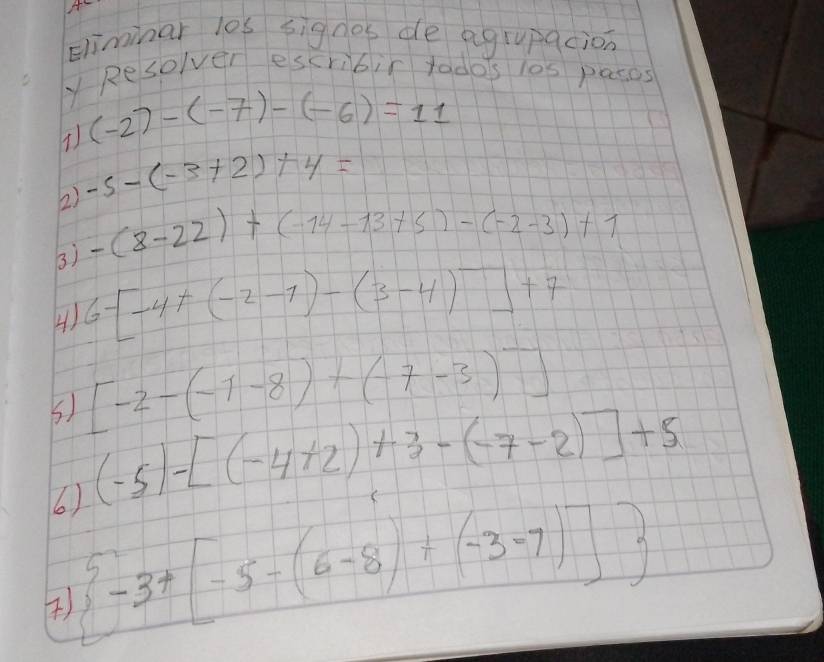 Eliminar los signos de agrupación
y Resolver escribir todos los pasos
1) (-2) - (-7) - (-6) = 11
2) -5 - (-3+2) + 4 =
3) -(8-22) + (-14-13+5) - (-2-3) + 1
4) 6-[-4+(-2-1)-(3-4)]+7
5) [-2-(-1-8)+(-7-3)]
6) (-5)-[(-4+2)+3-(-7-2)]+5
7) {-3+[-5-(6-8)+(-3-7)]}